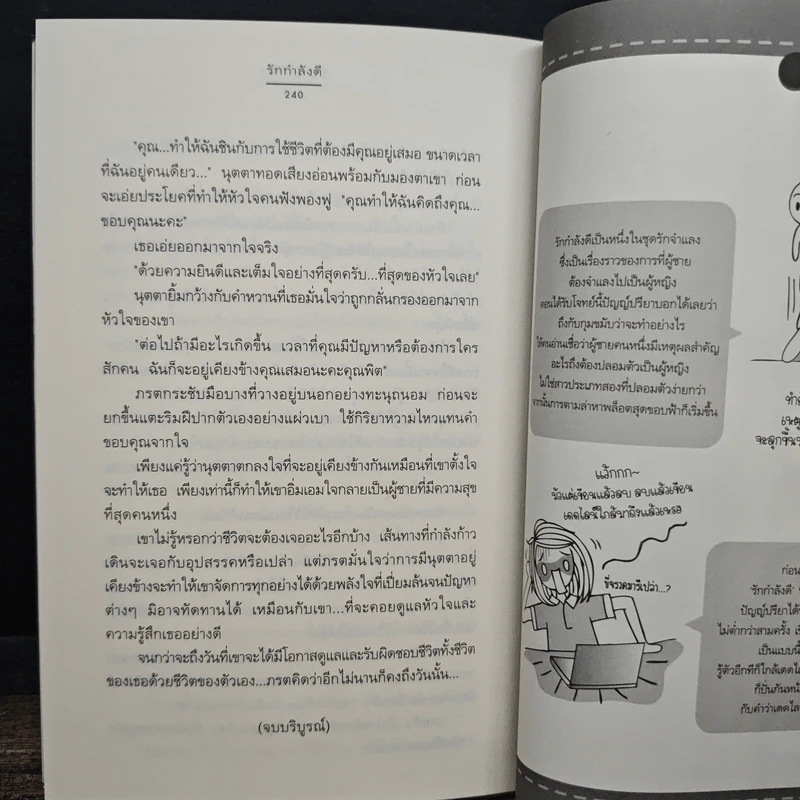 รักกำลังดี
240
"คุณ...ทำให้ฉันชินกับการใช้ชีวิตที่ต้องมีคุณอยู่เสมอ ขนาดเวลา
ที่ฉันอยู่คนเดียว..." นุตตาทอดเสียงอ่อนพร้อมกับมองตาเขา ก่อน
จะเอ่ยประโยคที่ทำให้หัวใจคนฟังพองฟู "คุณทำให้ฉันคิดถึงคุณ...
ขอบคุณนะคะ"
เธอเอ่ยออกมาจากใจจริง
"ด้วยความยินดีและเต็มใจอย่างที่สุดครับ...ที่สุดของหัวใจเลย"
นุตตายิ้มกว้างกับคำหวานที่เธอมั่นใจว่าถูกกลั่นกรองออกมาจาก
หัวใจของเขา
"ต่อไปถ้ามีอะไรเกิดขึ้น เวลาที่คุณมีปัญหาหรือต้องการใคร
สักคน ฉันก็จะอยู่เคียงข้างคุณเสมอนะคะคุณพิต"
ภรตกระชับมือบางที่วางอยู่บนอกอย่างทะนุถนอม ก่อนจะ
ยกขึ้นแตะริมฝีปากตัวเองอย่างแผ่วเบา ใช้กิริยาหวามไหวแทนคำ
ขอบคุณจากใจ
เพียงแค่รู้ว่านุตตาตกลงใจที่จะอยู่เคียงข้างกันเหมือนที่เขาตั้งใจ
จะทำให้เธอ เพียงเท่านี้ก็ทำให้เขาอิ่มเอมใจกลายเป็นผู้ชายที่มีความสุข
ที่สุดคนหนึ่ง
เขาไม่รู้หรอกว่าชีวิตจะต้องเจออะไรอีกบ้าง เส้นทางที่กำลังก้าว
เดินจะเจอกับอุปสรรคหรือเปล่า แต่ภรตมั่นใจว่าการมีนุตตาอยู่
เคียงข้างจะทำให้เขาจัดการทุกอย่างได้ด้วยพลังใจที่เปี่ยมล้นจนปัญหา
ต่างๆ มิอาจทัดทานได้ เหมือนกับเขา...ที่จะคอยดูแลหัวใจและ
ความรู้สึกเธออย่างดี
จนกว่าจะถึงวันที่เขาจะได้มีโอกาสดูแลและรับผิดชอบชีวิตทั้งชีวิต
ของเธอด้วยชีวิตของตัวเอง...ภรตคิดว่าอีกไม่นานก็คงถึงวันนั้น...
(จบบริบูรณ์)
รักกำลังดีเป็นหนึ่งในชุดรักจำแลง
ซึ่งเป็นเรื่องราวของการที่ผู้ชาย
ต้องจำแลงไปเป็นผู้หญิง
ตอนได้รับโจทย์นี้ปัญญ์ปรียาบอกได้เลยว่า
ถึงกับกุมขมับว่าจะทำอย่างไร
ให้คนอ่านเชื่อว่าผู้ชายคนหนึ่งมีเหตุผลสำคัญ
อะไรถึงต้องปลอมตัวเป็นผู้หญิง
ไม่ใช่สาวประเภทสองที่ปลอมตัวง่ายกว่า
จากนั้นการตามล่าหาพล็อตสุดขอบฟ้าก็เริ่มขึ้น
ทำ
เหตุ
จะลุกขึ้น
แว้กกก~
มัวแต่เขียนแล้วลบ ลบแล้วเขียน
เดดไลน์ใกล้มาถึงแล้วเหรอ
ขี่จรวดมารึเปล่า...?
ก่อน
'รักกำลังดี'
ปัญญ์ปรียาได้
ไม่ต่ำกว่าสามครั้ง
เป็นแบบนี้
รู้ตัวอีกทีก็ใกล้เดดไล
ก็ปั่นกันหน้า
กับคำว่าเดดไล